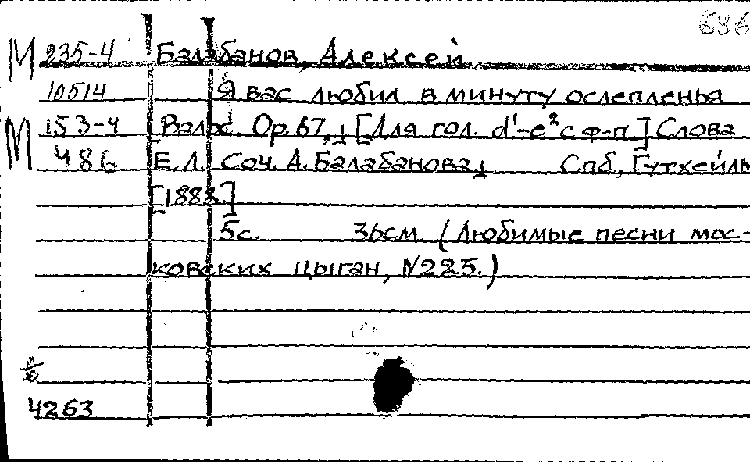 686
М 235-4 Балабанов, Алексей
10514 Я вас любил в минуту ослепленья
М 153-4 Вальс. Ор. 67. [Для гол. d¹-e² с ф-п] Слова
486 Е.Л. Соч. А. Балабанова. Спб, Гутхейль
[1888]
5с. 36см (Любимые песни мос-
ковских цыган, №225.)
4263